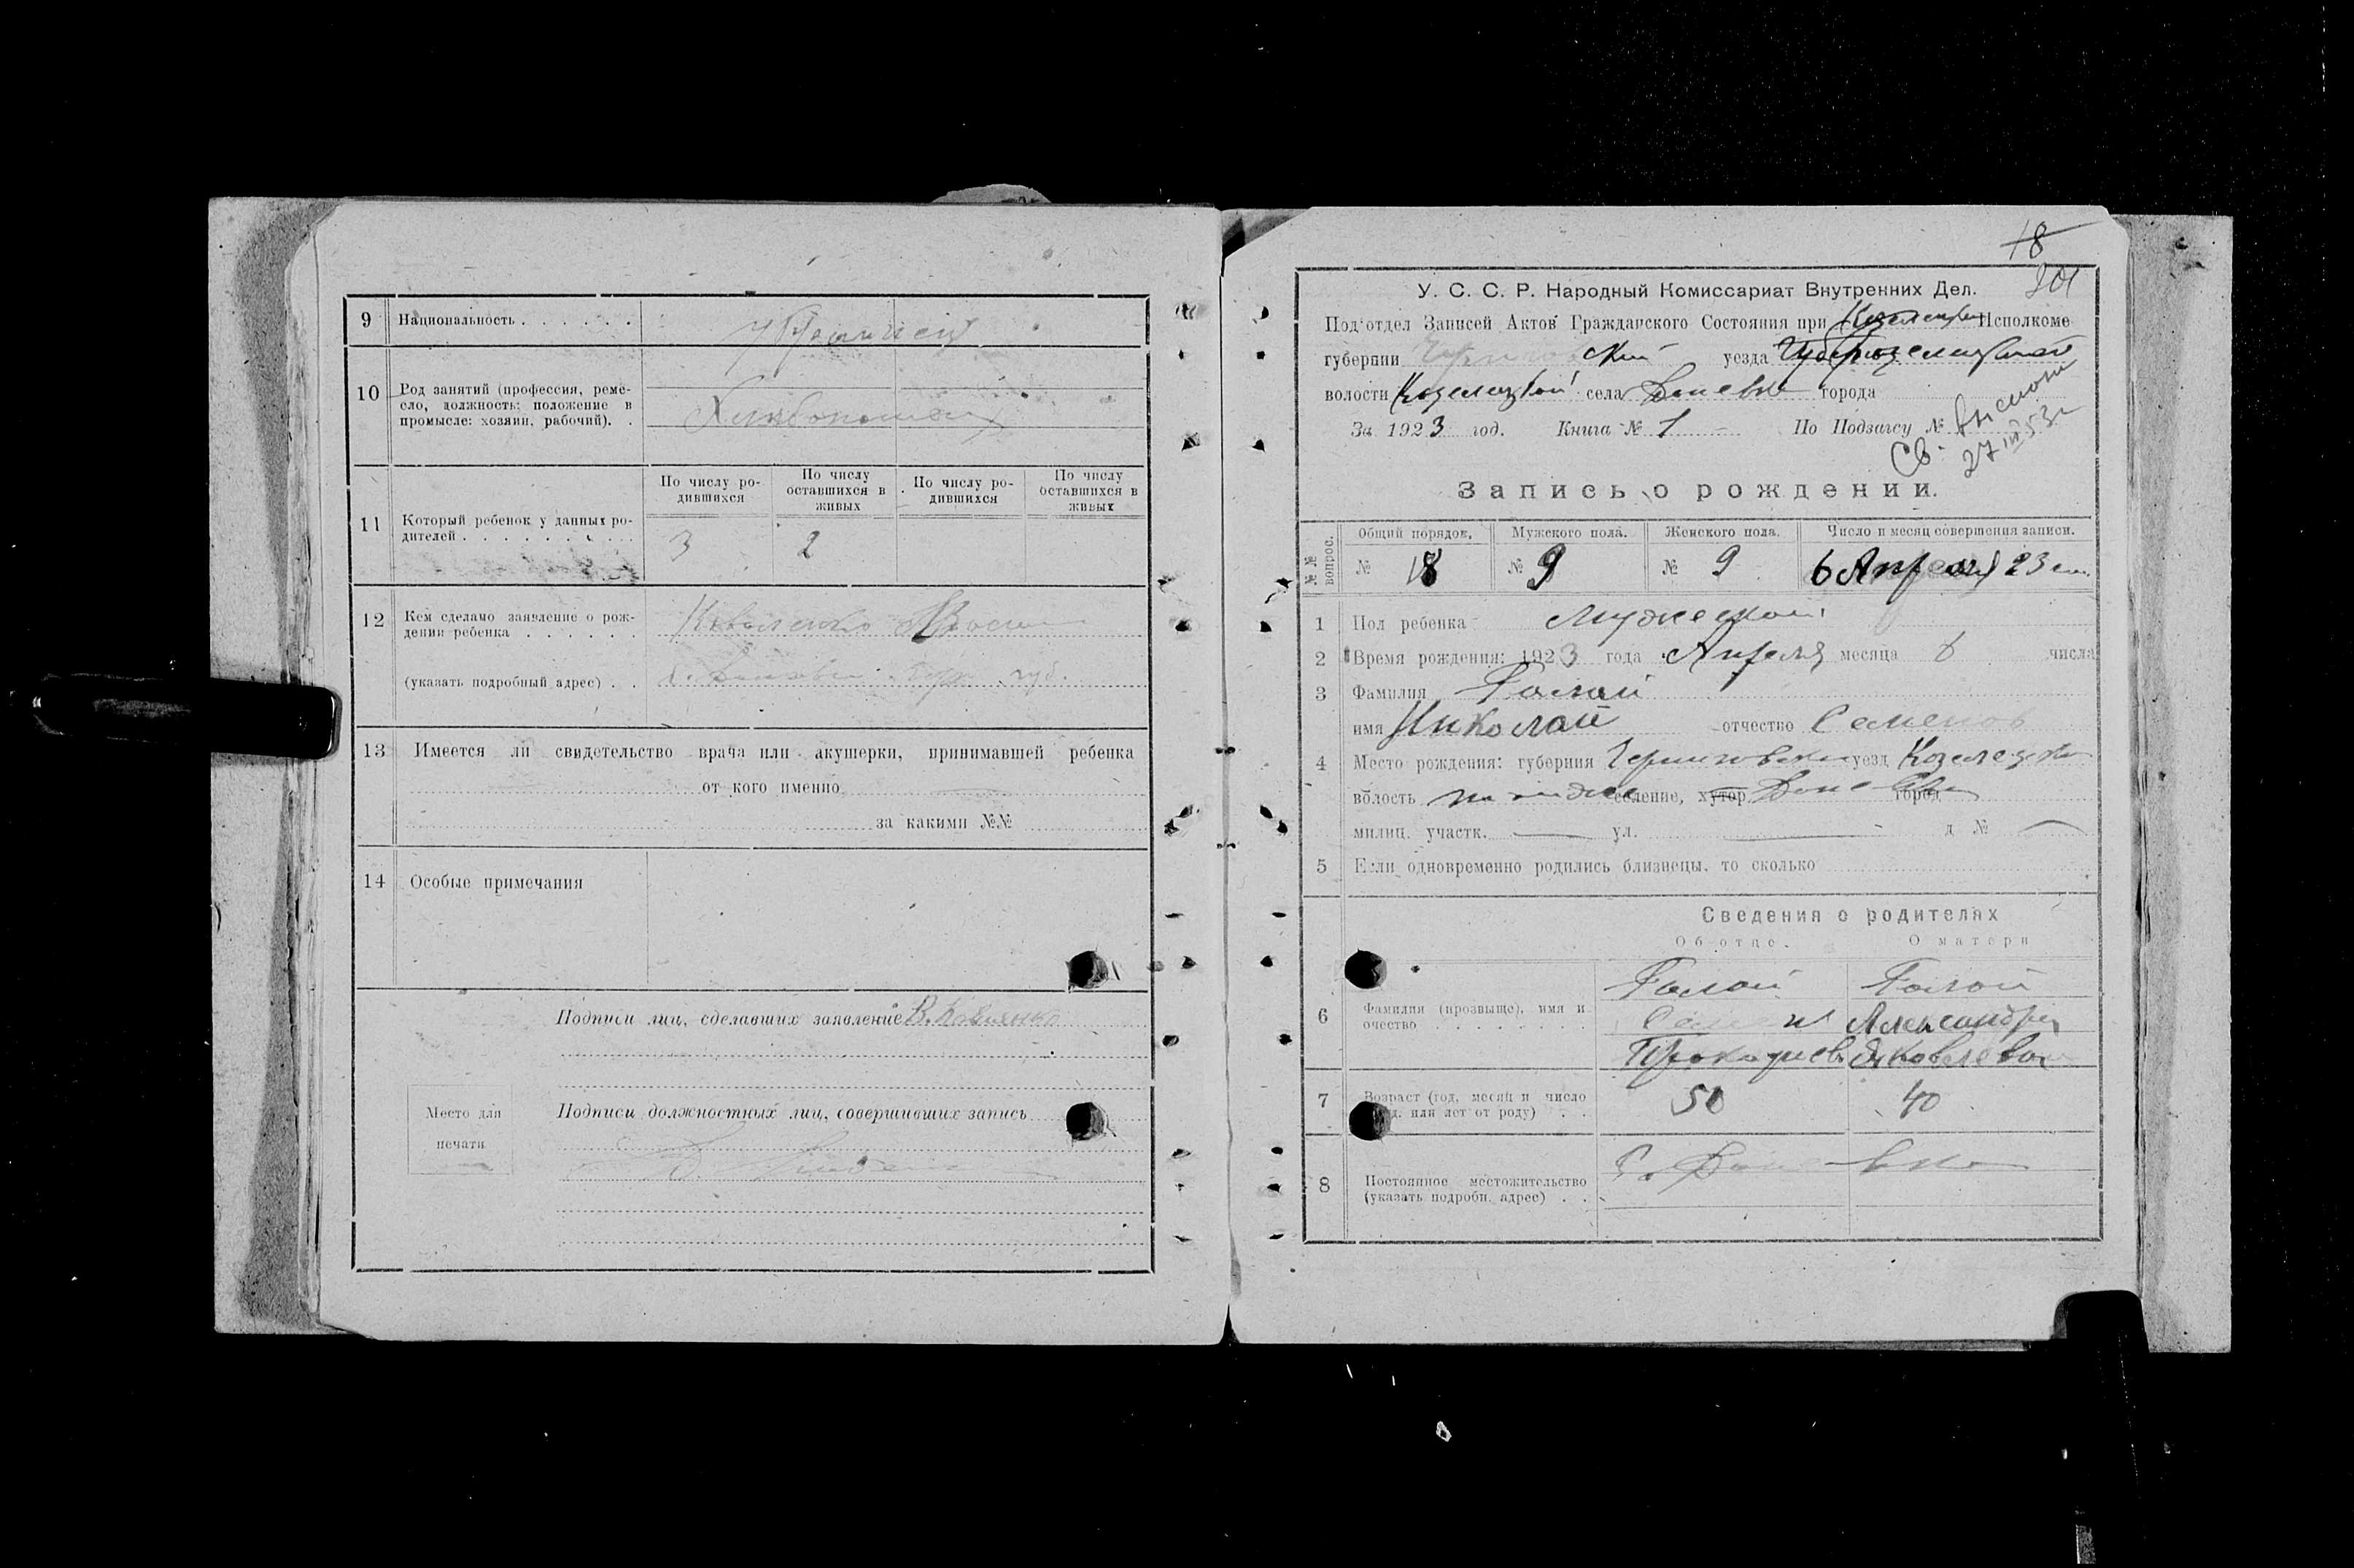 9 Национальность . . . . . .
10 Род занятий (профессия, реме-
сло, должность; положение в
промысле: хозяин, рабочий). .
11 Который ребенок у данных ро-
дителей . . . . . . . . . .
По числу ро-
дившихся
По числу
оставшихся в
живых
По числу ро-
дившихся
По числу
оставшихся в
живых
3 2
12 Кем сделано заявление о рож-
дении ребенка . . . . . .
(указать подробный адрес) . .
13 Имеется ли свидетельство врача или акушерки, принимавшей ребенка
от кого именно
за какими №№
14 Особые примечания
Подписи лиц, сделавших заявление В. Коваленко
Место для
печати
Подписи должностных лиц, совершивших запись
18
201
У. С. С. Р. Народный Комиссариат Внутренних Дел.
Под'отдел Записей Актов Гражданского Состояния при Исполкоме
губернии уезда
волости Козелецкой села Даневки города
За 1923 год. Книга № 1 По Подзагсу №
Св. выслано
27 III 53 г
Запись о рождении.
№ № вопрос.
Общий порядок. Мужского пола. Женского пола. Число и месяц совершения записи.
№ 18 № 9 № 9 6 Апреля 23
1 Пол ребенка Мужеской
2 Время рождения: 1923 года Апреля месяца 6 числа
3 Фамилия Галай
имя Николай отчество Семенов
4 Место рождения: губерния Черниговская уезд Козелецкий
волость селение, хутор город
милиц. участк. — ул. — д № —
5 Если одновременно родились близнецы, то сколько
Сведения о родителях
Об отце. О матери
6 Фамилия (прозвище), имя и
очество . . . . . . . .
Галай Галай
Семен Александра
Прокофиев Яковлева
7 Возраст (год, месяц и число
. или лет от роду) . .
50 40
8 Постоянное местожительство
(указать подробн. адрес) . .
с. Даневка